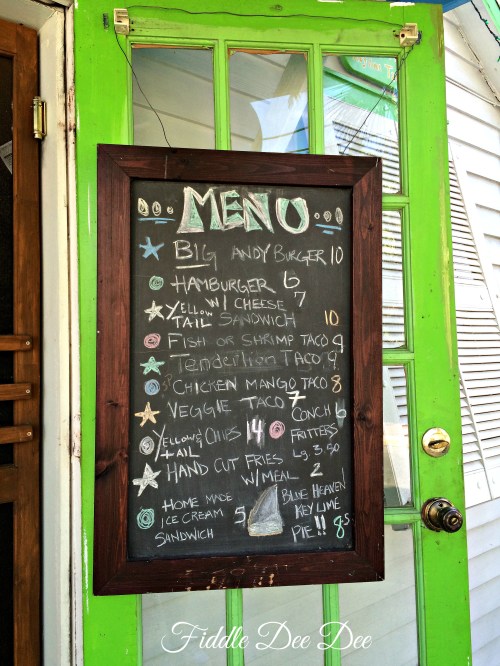 MENU
BIG ANDY BURGER 10
HAMBURGER 6
W/ CHEESE 7
YELLOW TAIL SANDWICH 10
FISH OR SHRIMP TACO 9
Tenderlion TACO 9
CHICKEN MANGO TACO 8
VEGGIE TACO 7
CONCH 6
FRITTERS
Lg. 3.50
YELLOW & CHIPS 14
TAIL
HAND CUT FRIES
W/ MEAL 2
HOME MADE
ICE CREAM 5
SANDWICH
BLUE HEAVEN
KEY LIME
PIE!! 8.5
Fiddle Dee Dee